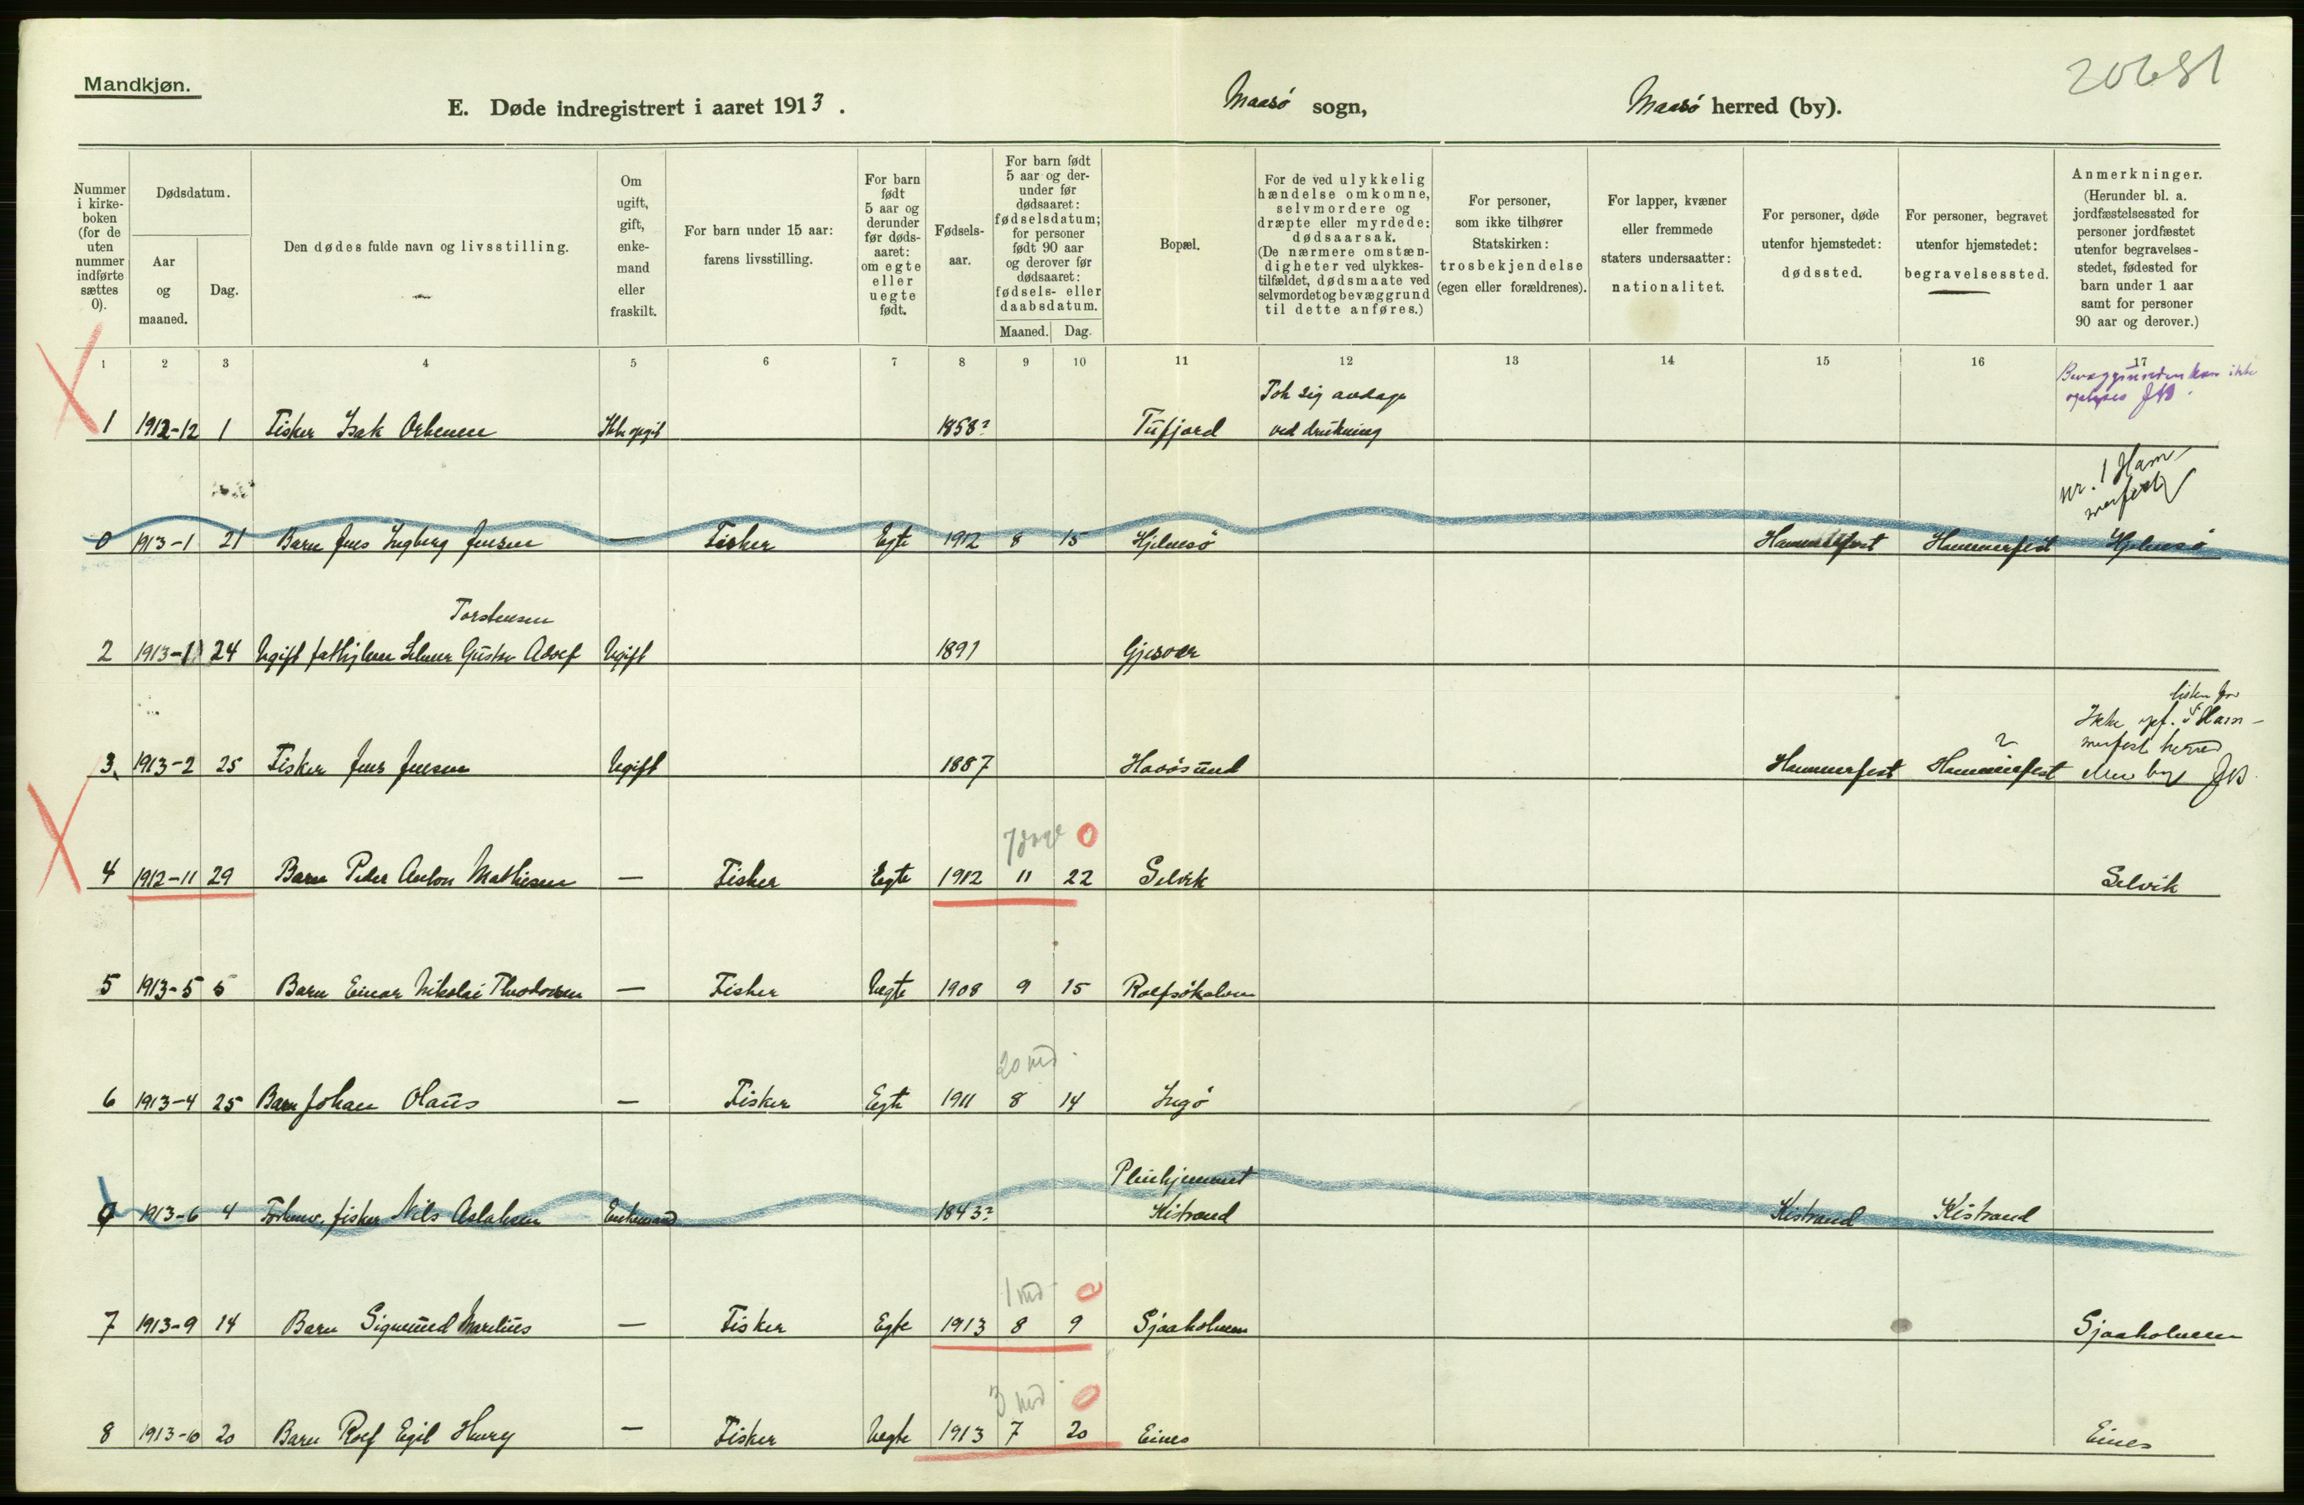 Mandkjøn.
20681
E. Døde indregistrert i aaret 1913.
Maasö sogn,
Maasö herred (by).
Nummer i kirke-boken (for de uten nummer indførte sættes 0).
Dødsdatum.
Aar og maaned.
Dag.
Den dødes fulde navn og livsstilling.
Om ugift, gift, enke-mand eller fraskilt.
For barn under 15 aar: farens livsstilling.
For barn født 5 aar og derunder før døds-aaret: om egte eller uegte født.
Fødsels-aar.
For barn født 5 aar og der-under før dødsaaret: fødselsdatum; for personer født 90 aar og derover før dødsaaret: fødsels- eller daabsdatum.
Maaned. Dag.
Bopæl.
For de ved ulykkelig hændelse omkomne, selvmordere og dræpte eller myrdede: dødsaarsak. (De nærmere omstæn-digheter ved ulykkes-tilfældet, dødsmaate ved selvmordet og bevæggrund til dette anføres.)
For personer, som ikke tilhører Statskirken: trosbekjendelse (egen eller forældrenes).
For lapper, kvæner eller fremmede staters undersaatter: nationalitet.
For personer, døde utenfor hjemstedet: dødssted.
For personer, begravet utenfor hjemstedet: begravelsessted.
Anmerkninger. (Herunder bl. a. jordfæstelsessted for personer jordfæstet utenfor begravelses-stedet, fødested for barn under 1 aar samt for personer 90 aar og derover.)
1 2 3 4 5 6 7 8 9 10 11 12 13 14 15 16 17
Tok sig avdage
Bevæggrunden kan ikke
oplyses JB.
1 1912-12 1 Fisker Isak Ikke opgit 1858? Tufjord ved drukning
nr. 1 Ham-
merfest
0 1913-1 21 Barn Jens Ingberg Jensen — Fisker Egte 1912 8 15 Hjelmsö Hammerfest Hammerfest Hjelmsö
Torstensen
2 1913-1 24 Ugift Gustav Adolf Ugift 1891 Gjesvær
listen for
Ikke opf. i Ham-
merfest herred
3 1913-2 25 Fisker Jens Jensen Ugift 1887 Havösund Hammerfest Hammerfest ? eller by JB.
7 dage 0
4 1912-11 29 Barn Peder Anton Mathisen — Fisker Egte 1912 11 22 Selvik Selvik
5 1913-5 5 Barn Einar Nikolai Theodorsen — Fisker Uegte 1908 9 15 Rolfsökalven
20 md.
6 1913-4 25 Barn Johan Olaus — Fisker Egte 1911 8 14 Ingö
Pleiehjemmet
0 1913-6 4 Forhenv. fisker Nils Aslaksen Enkemand 1843? Kistrand Kistrand Kistrand
1 md 0
7 1913-9 14 Barn Sigmund Marelius — Fisker Egte 1913 8 9 Sjaaholmen Sjaaholmen
3 md 0
8 1913-10 20 Barn Rolf Egil Henry — Fisker Uegte 1913 7 20 Eines Eines